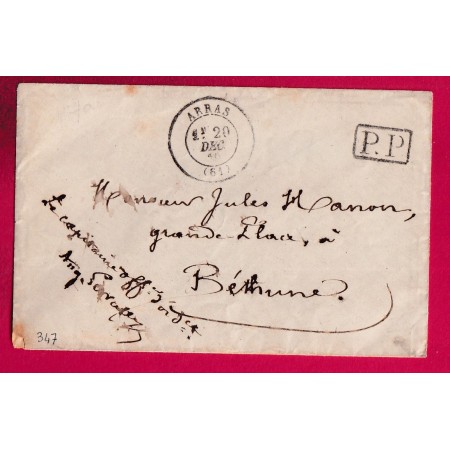 ARRAS
29
DEC
(61)
P.P
Monsieur Jules Hanon,
grande Place, à
Béthune.
Le capitaine off. d'ord.
347